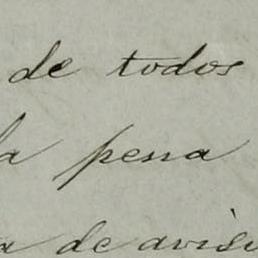 de todos
la pena
a de avisu